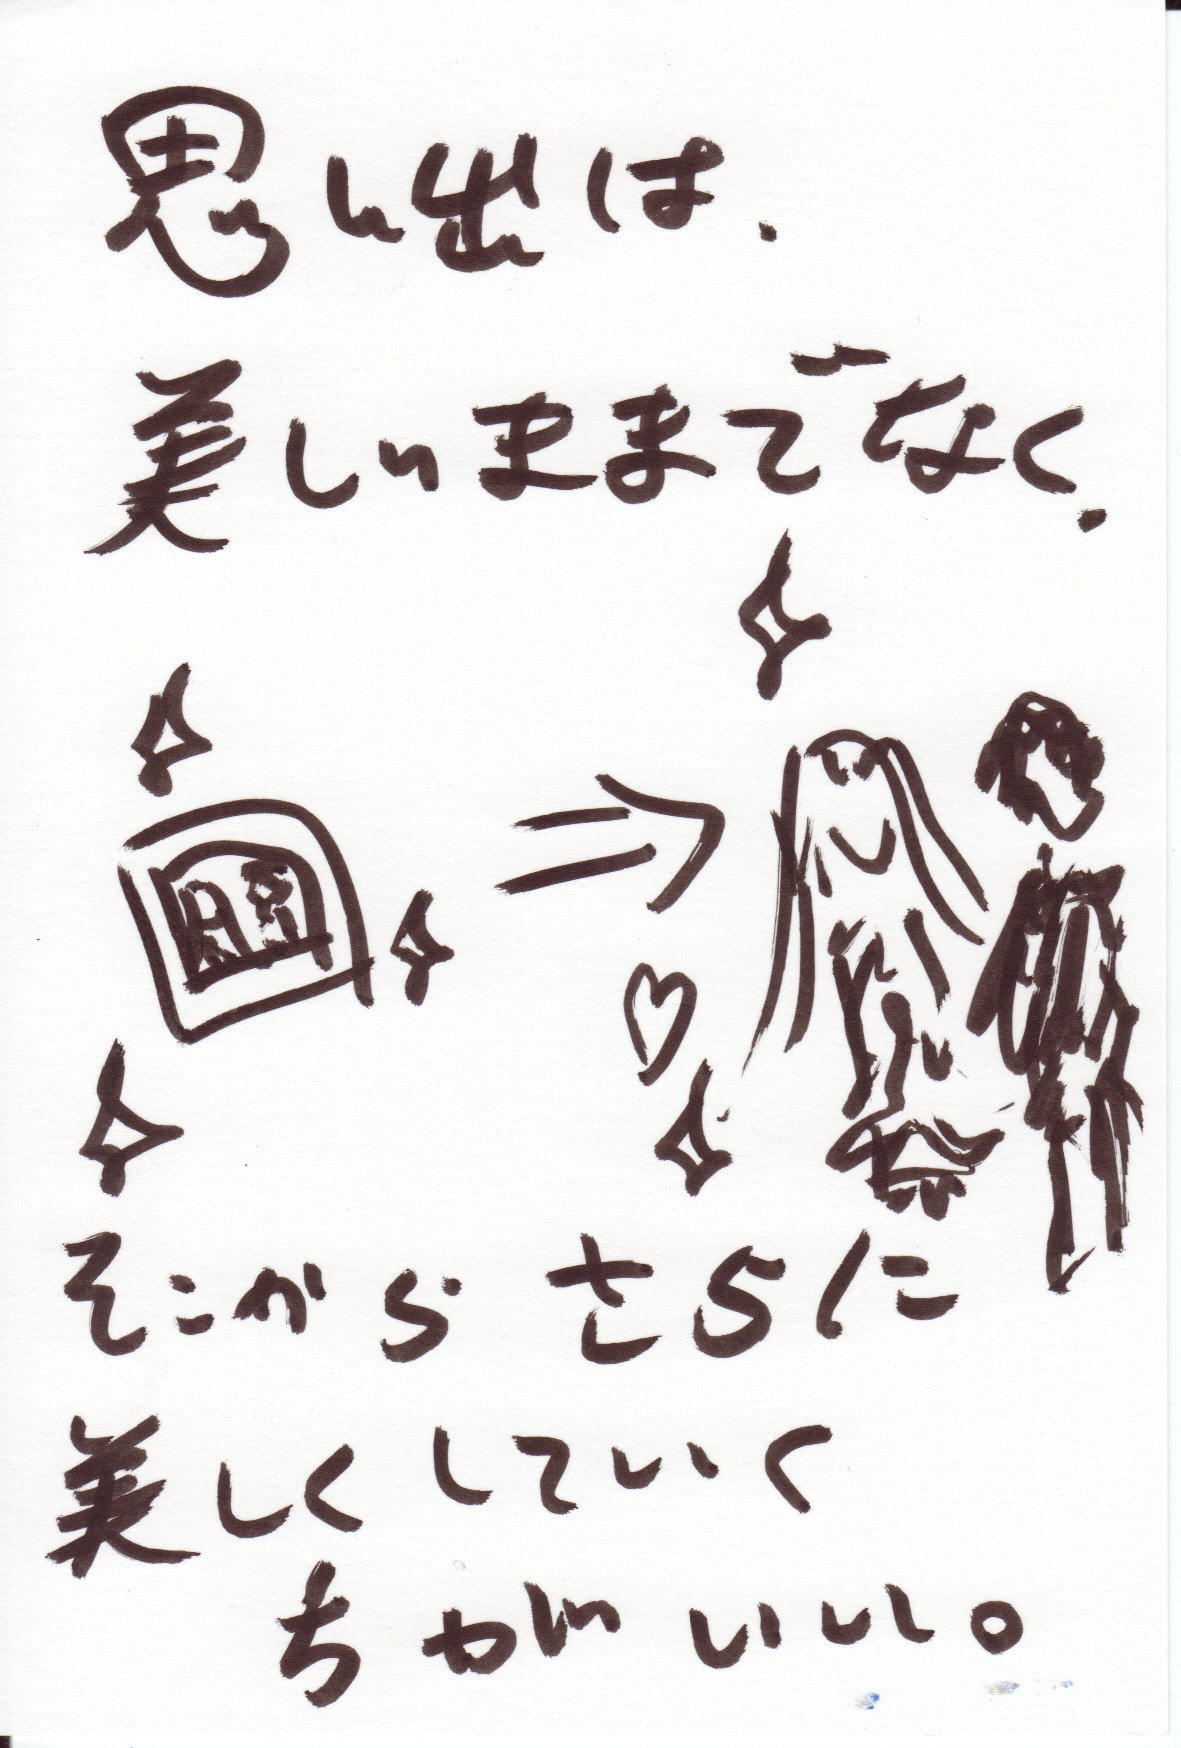 思い出は、
美しいままでなく、
そこから さらに
美しくしていく
ちがいい。